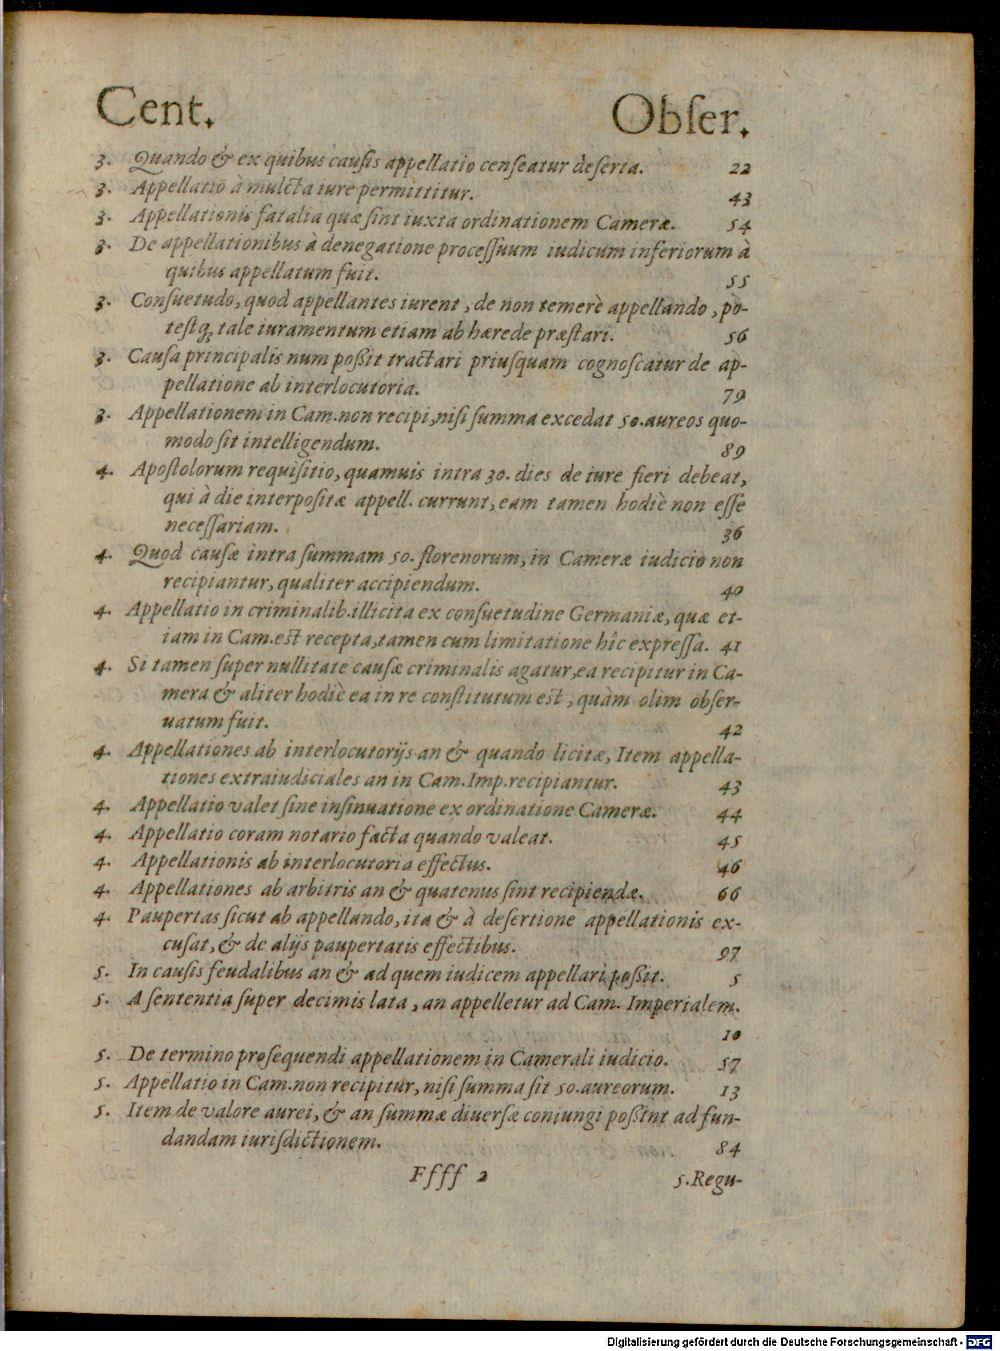 Cent. Obſer.
3. Quando & ex quibus cauſis appellatio cenſeatur deſerta. 22
3. Appellatio à mulcta iure permittitur. 43
3. Appellationis fatalia quæ ſint iuxta ordinationem Cameræ. 54
3. De appellationibus à denegatione proceſſuum iudicum inferiorum à
quibus appellatum fuit. 55
3. Conſuetudo, quod appellantes iurent, de non temerè appellando, po-
teſtq́; tale iuramentum etiam ab hærede præſtari. 56
3. Cauſa principalis num poßit tractari priuſquam cognoſcatur de ap-
pellatione ab interlocutoria. 79
3. Appellationem in Cam. non recipi, niſi ſumma excedat 50. aureos quo-
modo ſit intelligendum. 89
4. Apoſtolorum requiſitio, quamuis intra 30. dies de iure fieri debeat,
qui à die interpoſitæ appell. currunt, eam tamen hodiè non eſſe
neceſſariam. 36
4. Quod cauſæ intra ſummam 50. florenorum, in Cameræ iudicio non
recipiantur, qualiter accipiendum. 40
4. Appellatio in criminalib. illicita ex conſuetudine Germaniæ, quæ et-
iam in Cam. eſt recepta, tamen cum limitatione hîc expreſſa. 41
4. Si tamen ſuper nullitate cauſæ criminalis agatur, ea recipitur in Ca-
mera & aliter hodiè ea in re conſtitutum eſt, quàm olim obſer-
uatum fuit. 42
4. Appellationes ab interlocutorijs an & quando licitæ, Item appella-
tiones extraiudiciales an in Cam. Imp. recipiantur. 43
4. Appellatio valet ſine inſinuatione ex ordinatione Cameræ. 44
4. Appellatio coram notario facta quando valeat. 45
4. Appellationis ab interlocutoria effectus. 46
4. Appellationes ab arbitris an & quatenus ſint recipiendæ. 66
4. Paupertas ſicut ab appellando, ita & à deſertione appellationis ex-
cuſat, & de alijs paupertatis effectibus. 97
5. In cauſis feudalibus an & ad quem iudicem appellari poßit. 5
5. A ſententia ſuper decimis lata, an appelletur ad Cam. Imperialem.
10
5. De termino proſequendi appellationem in Camerali iudicio. 57
5. Appellatio in Cam. non recipitur, niſi ſumma ſit 50. aureorum. 13
5. Item de valore aurei, & an ſummæ diuerſæ coniungi poßint ad fun-
dandam iurisdictionem. 84
Ffff 2 5. Regu-
Digitalisierung gefördert durch die Deutsche Forschungsgemeinschaft - DFG